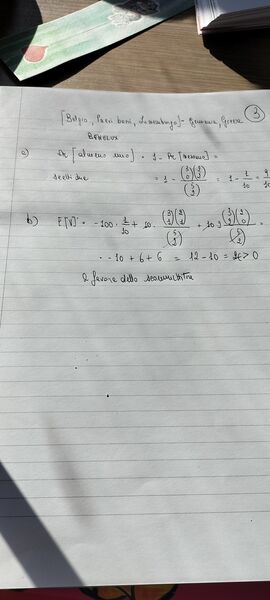 [Belgio, Paesi bassi, Lussemburgo] - Danimarca, Grecia 3
BENELUX
a) Pr [almeno uno] = 1 - Pr [nessuno] =
scelti due = 1 - (3 0)(2 2) / (5 2) = 1 - 1/10 = 9/10
b) E[V] = -100 · 1/10 + 10 · (3 1)(2 1) / (5 2) + 20 (3 2)(2 0) / (5 2) =
= -10 + 6 + 6 = 12 - 10 = 2€ > 0
a favore dello scommettitore